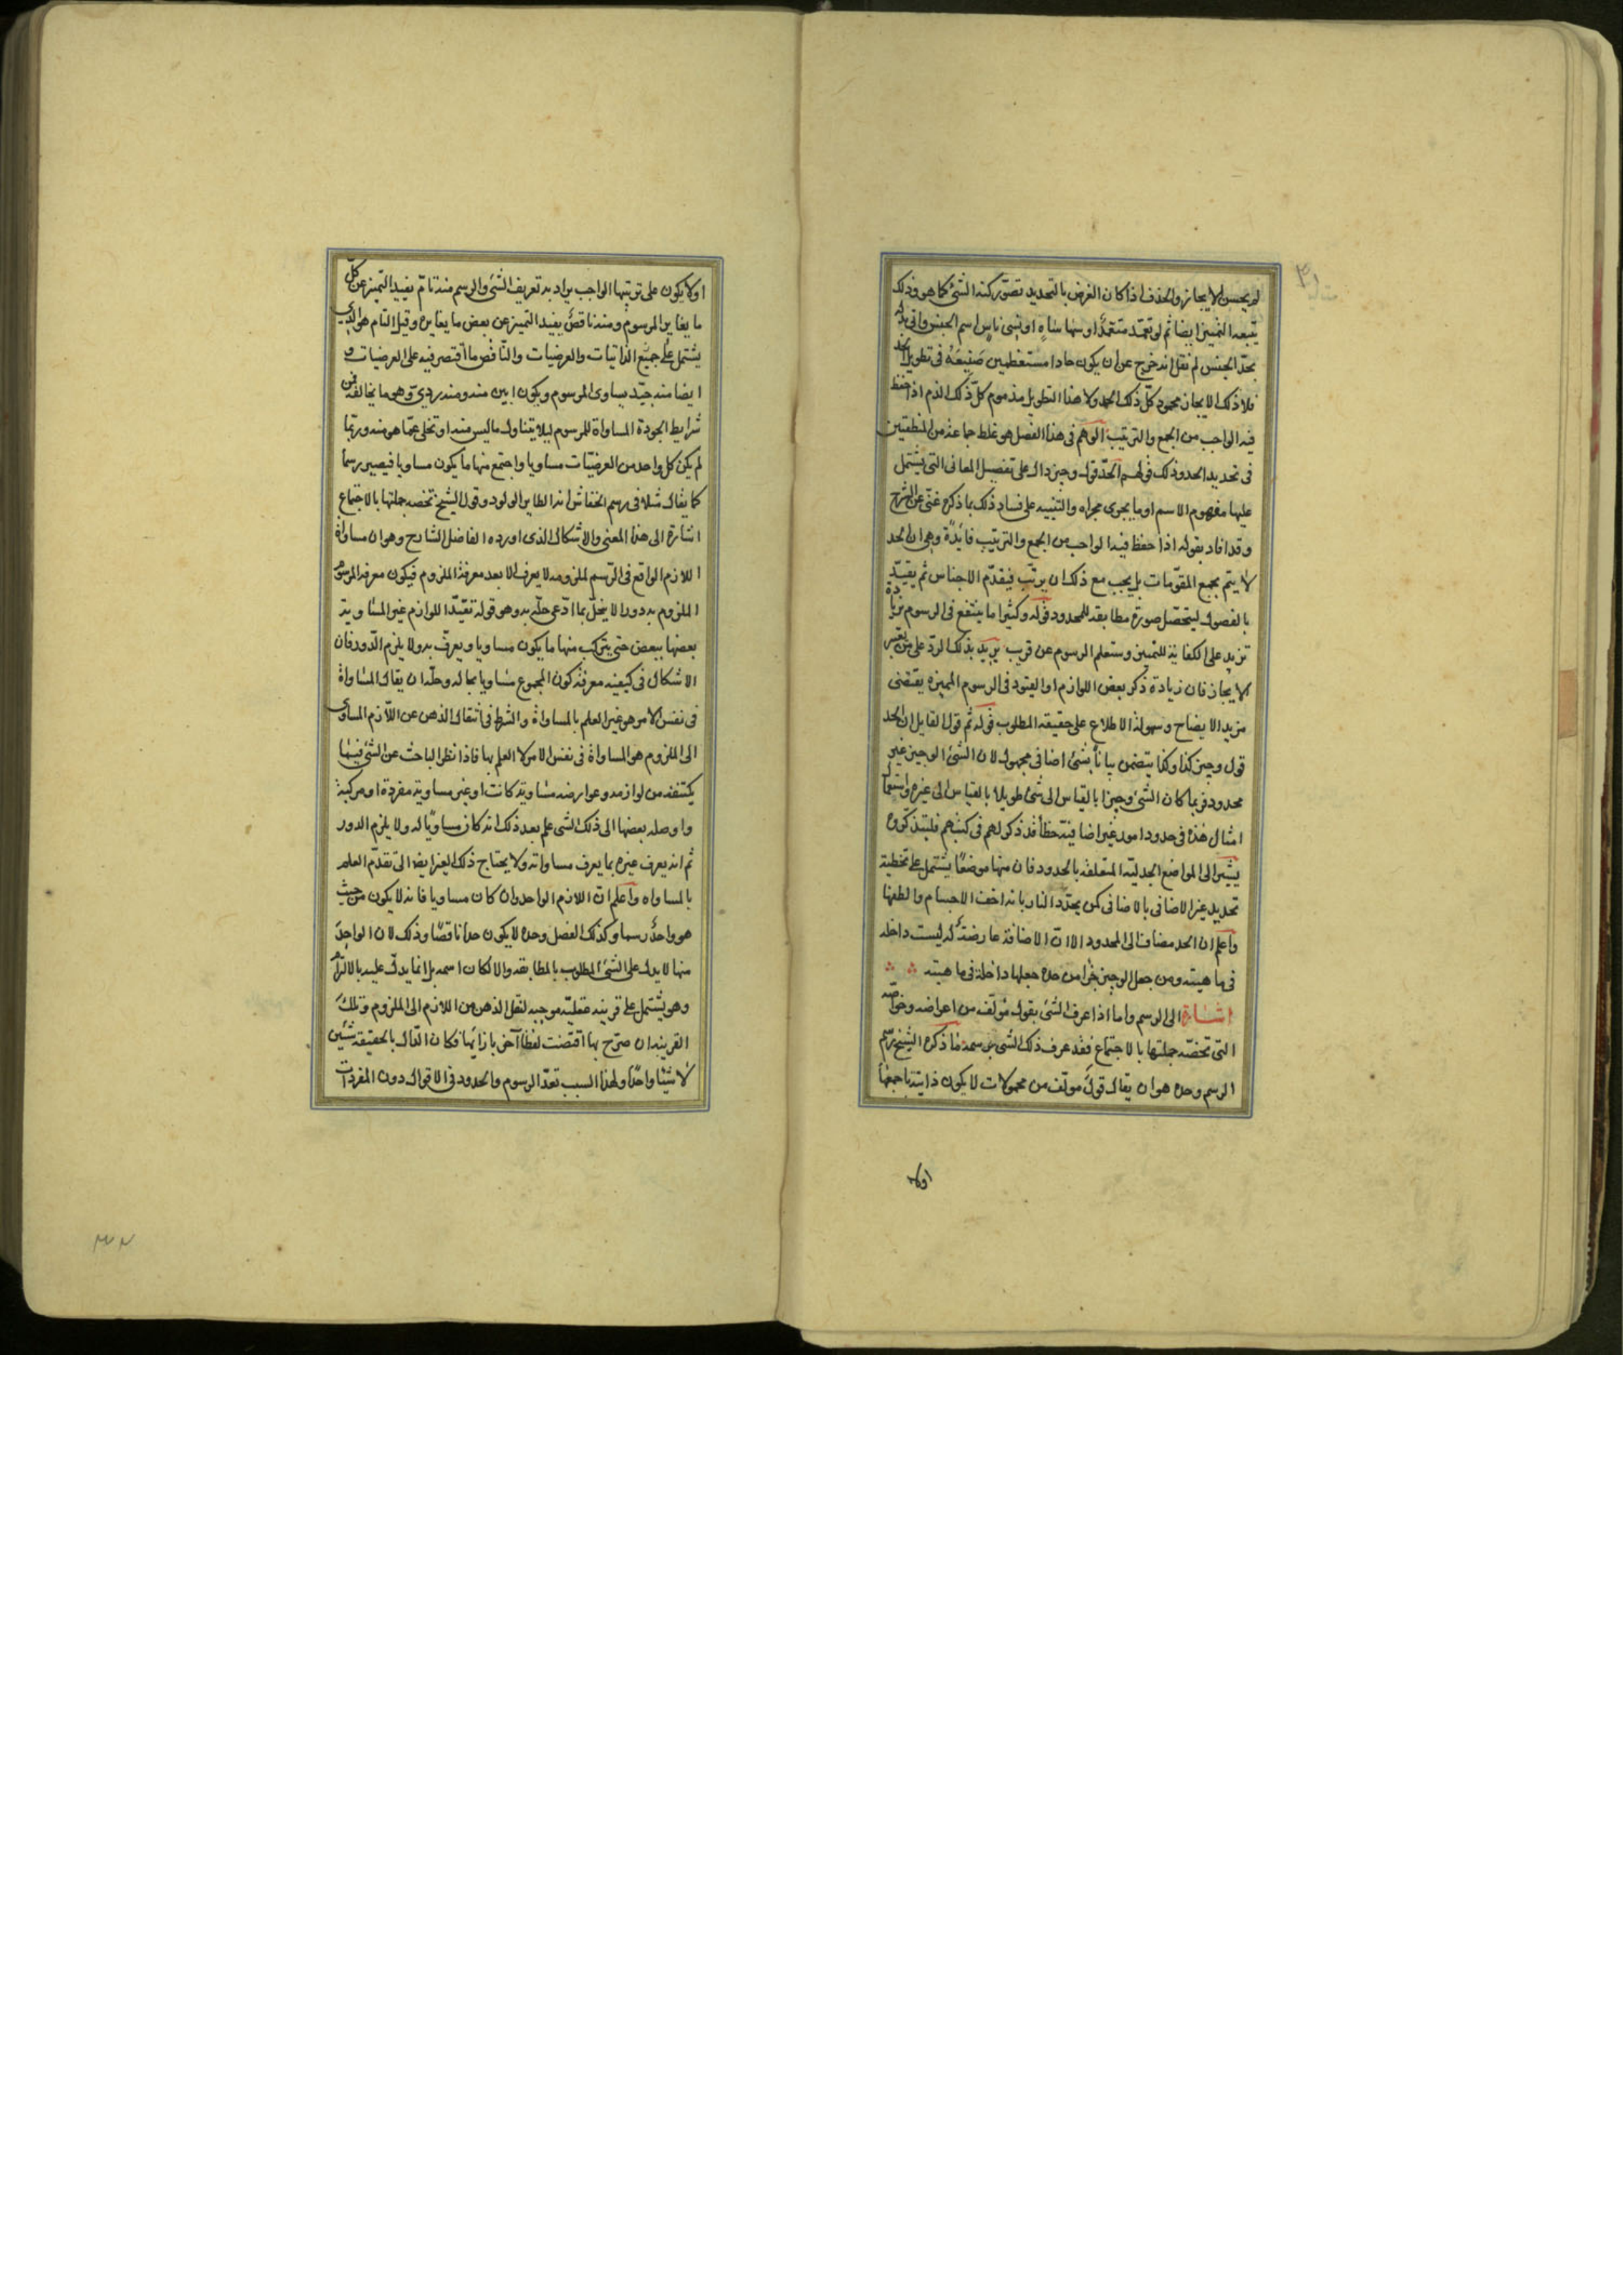 لم يحسن الايجاز والحذف اذا كان الغرض بالتحديد تصور كنه الشئ كما هو وذلك
يتبعه التمييز ايضا ثم لو تعمد متعمد او سها ساه او نسى ناس اسم الجنس واتى بدله
بحد الجنس لم نقل انه خرج عن ان يكون حادا مستعظمين صنيعه فى تطويل الحد
فلا ذلك الايجاز محمود كل ذلك الحمد ولا هذا التطويل مذموم كل ذلك الذم اذا حفظ
فيه الواجب من الجمع والترتيب الوهم فى هذا الفصل هو غلط جماعة من المنطقيين
فى تحديد الحد وذلك قولهم الحد قول وجيز دال على تفصيل المعانى التى يشتمل
عليها مفهوم الاسم او ما يجرى مجراه والتنبيه على فساد ذلك بما ذكره غنى عن الشرح
وقد افاد بقوله اذا حفظ فيه الواجب من الجمع والترتيب فائدة وهى ان الحد
لا يتم بجمع المقومات بل يجب مع ذلك ان يرتب فيقدم الاجناس ثم يقيد
بالفصول ليتحصل صورة مطابقة للمحدود قوله وكثيرا ما ينتفع فى الرسوم بزيادة
تزيد على الكفاية للتمييز وستعلم الرسوم عن قريب يريد بذلك الرد على من يعتبر
الايجاز فان زيادة ذكر بعض اللوازم او القيود فى الرسوم المميزة يقتضى
مزيد الايضاح وسهولة الاطلاع على حقيقة المطلوب قوله ثم قول القايل ان الحد
قول وجيز كذا وكذا يتضمن بيانا بشئ اضافى مجهول لان الشئ الوجيز غير
محدود فربما كان الشئ وجيزا بالقياس الى شئ طويلا بالقياس الى غيره واستعمال
امثال هذه فى حدود امور غير اضافية خطأ قد ذكر لهم فى كتبهم فليتذكروه
يشير الى المواضع الجدلية المتعلقة بالحدود فان منها موضعا يشتمل على تخطية
تحديد غير الاضافى بالاضافى كمن يحدد النار بانه اخف الاجسام والطفها
واعلم ان الحد مضاف الى المحدود الا ان الاضافة عارضة له ليست داخله
فى ماهيته ومن جعل الوجيز جزا من حده جعلها داخلة فى ماهيته
اشارة الى الرسم واما اذا عرف الشئ بقول مؤلف من اعراضه وخواصه
التى تخصه جملتها بالاجتماع فقد عرف ذلك الشى برسمه ما ذكره الشيخ رسم
الرسم وحده هو ان يقال قول مولف من محمولات لا يكون ذاتية باجمعها
اولا
او لا يكون على ترتيبها الواجب يراد به تعريف الشئ والرسم منه تام يفيد التميز عن كل
ما يغاير المرسوم ومنه ناقص يفيد التميز عن بعض ما يغايره وقيل التام هو الذى
يشتمل على جميع الذاتيات والعرضيات والناقص ما اقتصر فيه على العرضيات و
ايضا منه جيد يساوى المرسوم ويكون ابين منه ومنه ردى وهو ما يخالفه فمن
شرايط الجودة المساواة للمرسوم ليلا يتناول ما ليس منه او تخلى عما هو منه وربما
لم يكن كل واحد من العرضيات مساويا واجتمع منها ما يكون مساويا فيصير رسما
كما يقال مثلا فى رسم الخفاش انه الطاير الولود وقول الشيخ تخصه جملتها بالاجتماع
اشارة الى هذا المعنى والاشكال الذى اورده الفاضل الشارح وهو ان مساواة
اللازم الواقع فى الرسم لملزومه لا يعرف الا بعد معرفة الملزوم فيكون معرفة المرسوم
الملزوم به دورا لا يخل بما ادعى حله به وهو قوله تقيد اللوازم غير المساوية
بعضها ببعض حتى يتركب منها ما يكون مساويا ويعرف به ولا يلزم الدور فان
الاشكال فى كيفية معرفة كون المجموع مساويا بحاله وحله ان يقال المساواة
فى نفس الامر هو غير العلم بالمساواة والشرط فى انتقال الذهن عن اللازم المساوى
الى الملزوم هو المساواة فى نفس الامر لا العلم بها فاذا نظر الباحث عن الشئ فيما
يكتنفه من لوازمه وعوارضه مساوية كانت او غير مساوية مفردة او مركبة
واوصله بعضها الى ذلك الشى علم بعد ذلك انه كان مساويا له ولا يلزم الدور
ثم انه يعرف غيره بما يعرف مساواته ولا يحتاج ذلك الغير ايضا الى تقدم العلم
بالمساواه واعلم ان اللازم الواحد وان كان مساويا فانه لا يكون من حيث
هو واحد رسما وكذلك الفصل وحده لا يكون حدا ناقصا وذلك لان الواحد
منها لا يدل على الشئ المطلوب بالمطابقه والا لكان اسمه بل انما يدل عليه بالالتزام
وهو يشتمل على قرينة عقلية موجبه لنقل الذهن من اللازم الى الملزوم وتلك
القرينة ان صرح بها اقتضت لفظا آخر بازائها فكان الدال بالحقيقة شيئين
لا شيئا واحدا ولهذا السبب تعد الرسوم والحدود فى الاقوال دون المفردات